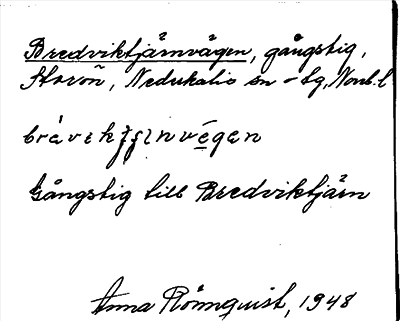 Bredviktjärnvägen, gångstig,
Storön, Nederkalix sn – tg, Norrb. l
Gångstig till Bredviktjärn
Anna Rönnquist, 1948